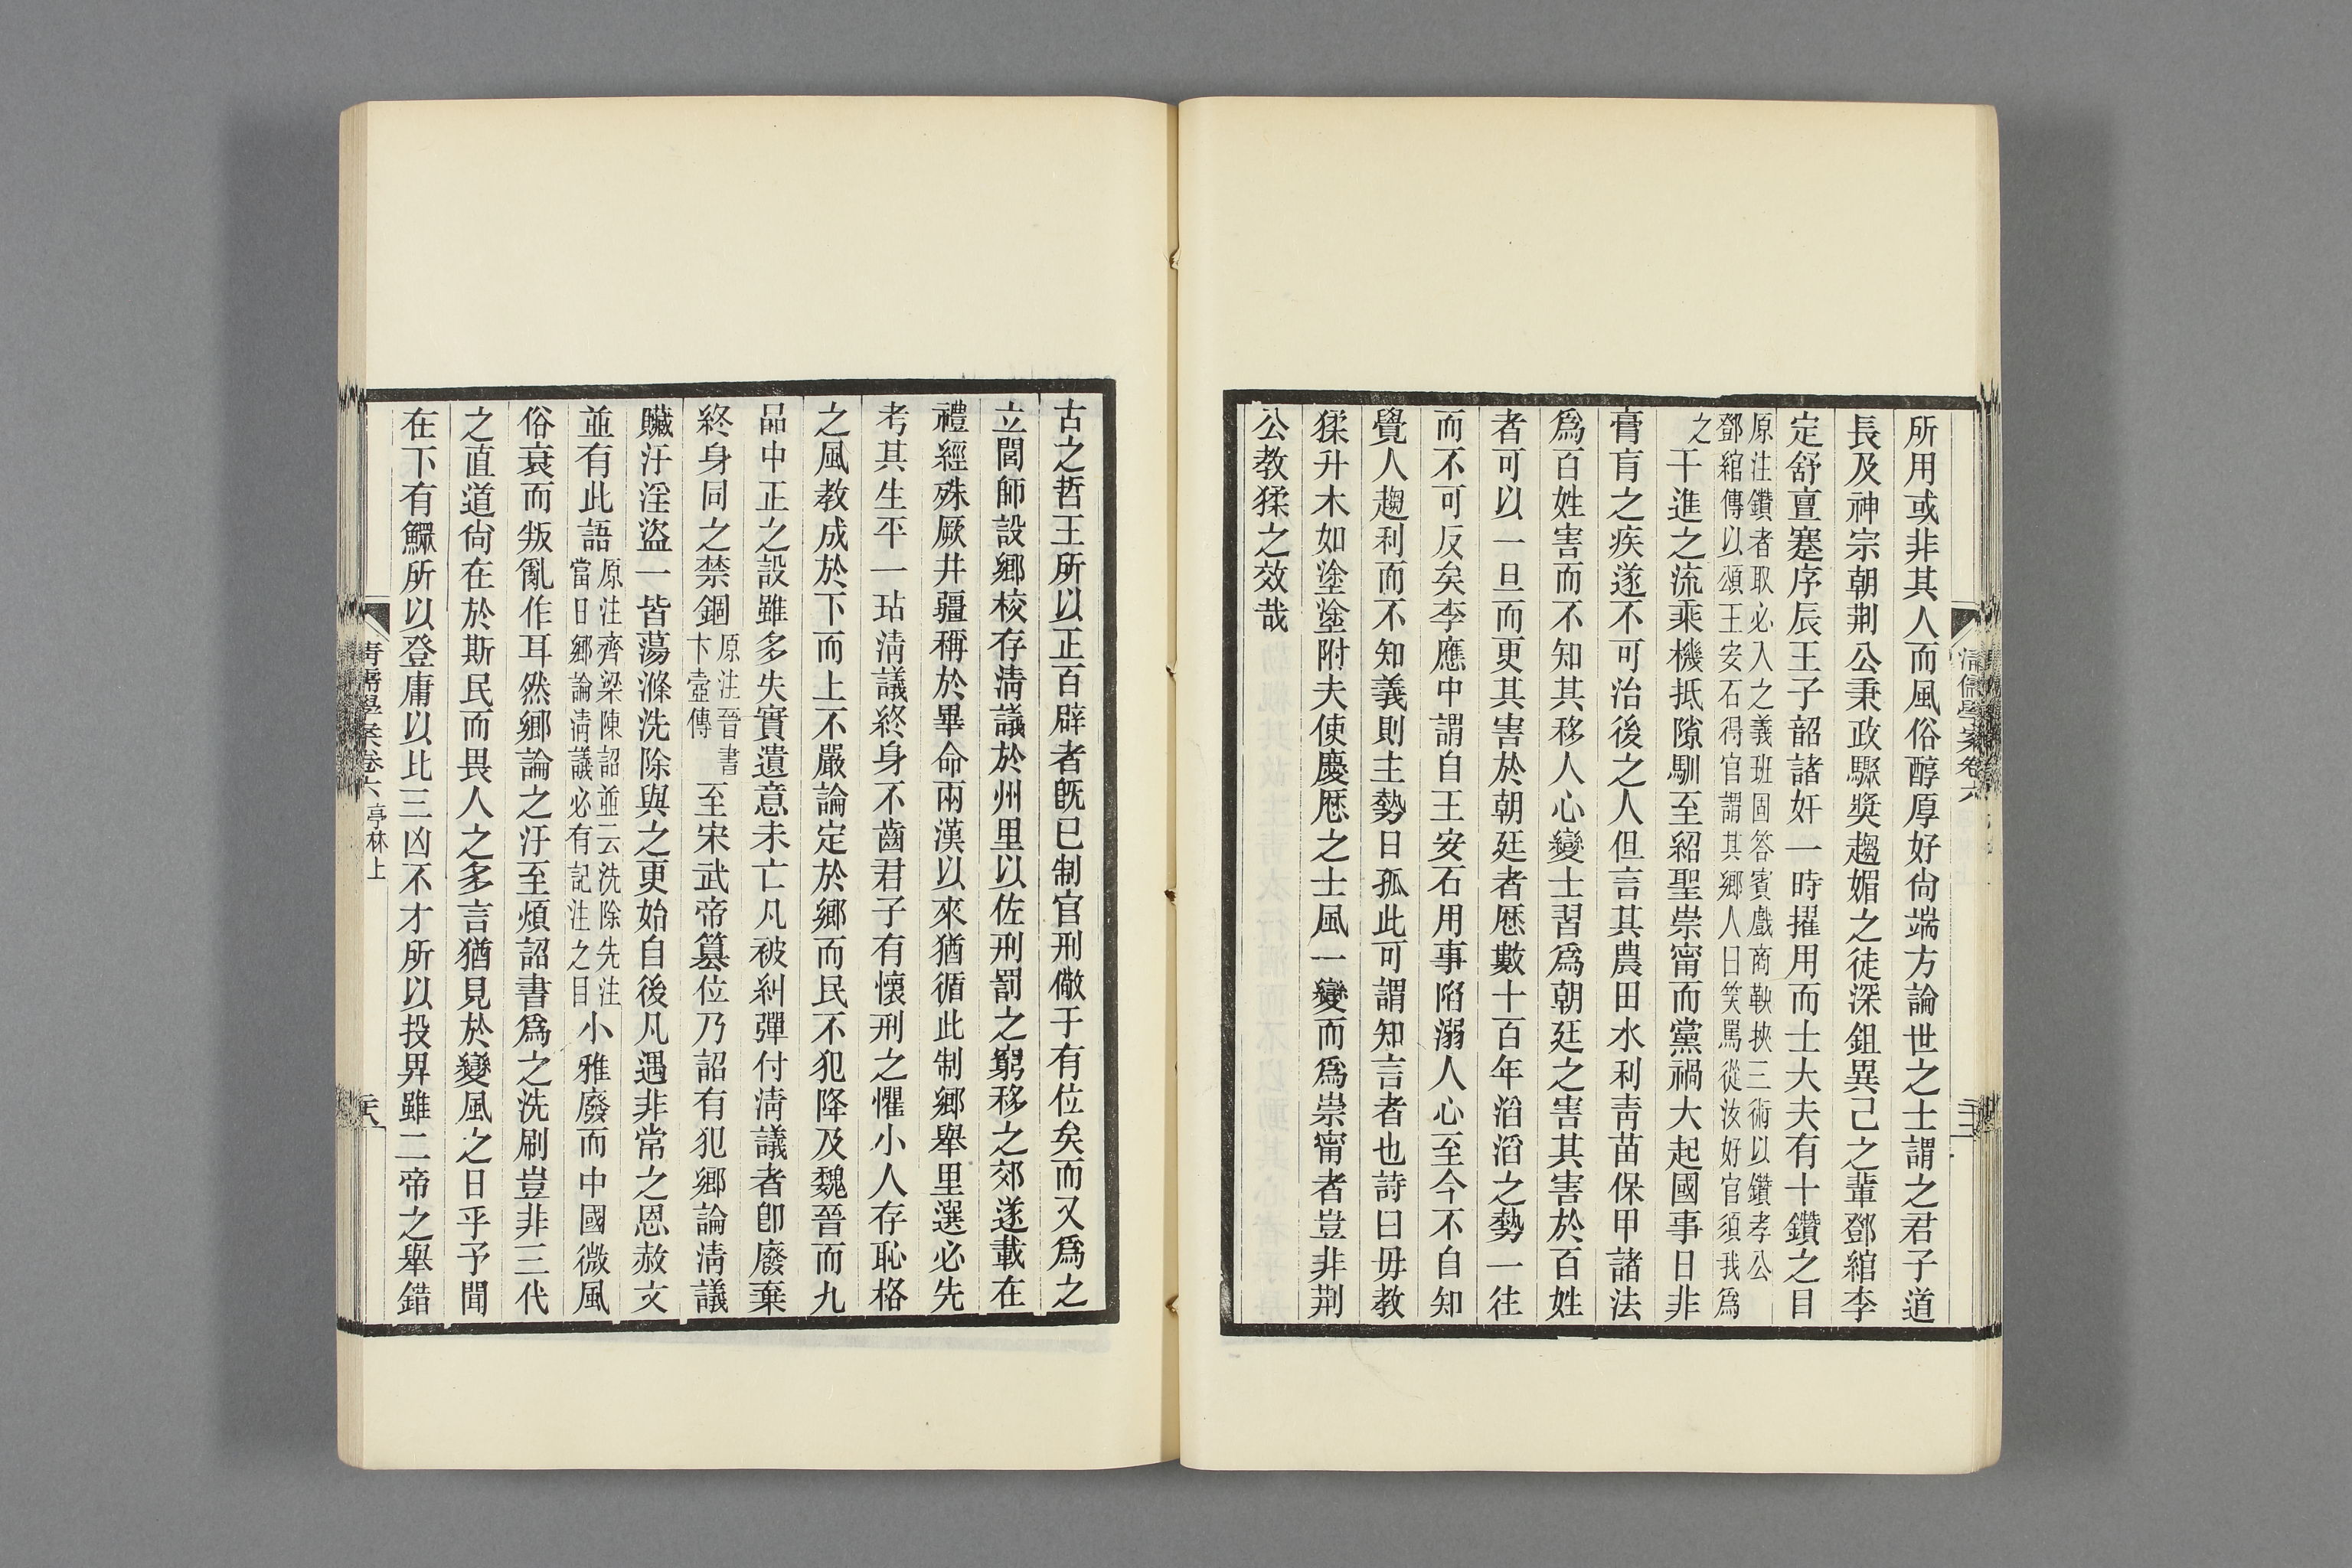 所用或非其人而風俗醇厚好尙端方論世之士謂之君子道
長及神宗朝荆公秉政驟獎趨媚之徒深鉏異己之輩鄧綰李
定舒亶蹇序辰王子韶諸奸一時擢用而士大夫有十鑽之目
原注鑽者取必入之義班固答賓戲商鞅挾三術以鑽孝公
鄧綰傳以頌王安石得官謂其鄉人曰笑罵從汝好官須我爲
之
干進之流乘機抵隙馴至紹聖崇甯而黨禍大起國事日非
膏肓之疾遂不可治後之人但言其農田水利靑苗保甲諸法
爲百姓害而不知其移人心變士習爲朝廷之害其害於百姓
者可以一旦而更其害於朝廷者厯數十百年滔滔之勢一往
而不可反矣李應中謂自王安石用事陷溺人心至今不自知
覺人趨利而不知義則主勢日孤此可謂知言者也詩曰毋教
猱升木如塗塗附夫使慶厯之士風一變而爲崇甯者豈非荆
公教猱之效哉
清儒學案卷六
古之哲王所以正百辟者旣已制官刑儆于有位矣而又爲之
立閭師設鄉校存淸議於州里以佐刑罰之窮移之郊遂載在
禮經殊厥井疆稱於畢命兩漢以來猶循此制鄉舉里選必先
考其生平一玷淸議終身不齒君子有懷刑之懼小人存恥格
之風教成於下而上不嚴論定於鄉而民不犯降及魏晉而九
品中正之設雖多失實遺意未亡凡被糾彈付淸議者卽廢棄
終身同之禁錮
原注晉書
卞壼傳
至宋武帝篡位乃詔有犯鄉論淸議
贓汙淫盜一皆蕩滌洗除與之更始自後凡遇非常之恩赦文
並有此語
原注齊梁陳詔並云洗除先注
當日鄉論淸議必有記注之目
小雅廢而中國微風
俗衰而叛亂作耳然鄉論之汙至煩詔書爲之洗刷豈非三代
之直道尙在於斯民而畏人之多言猶見於變風之日乎予聞
在下有鰥所以登庸以比三凶不才所以投畀雖二帝之舉錯
清儒學案卷六 亭林上